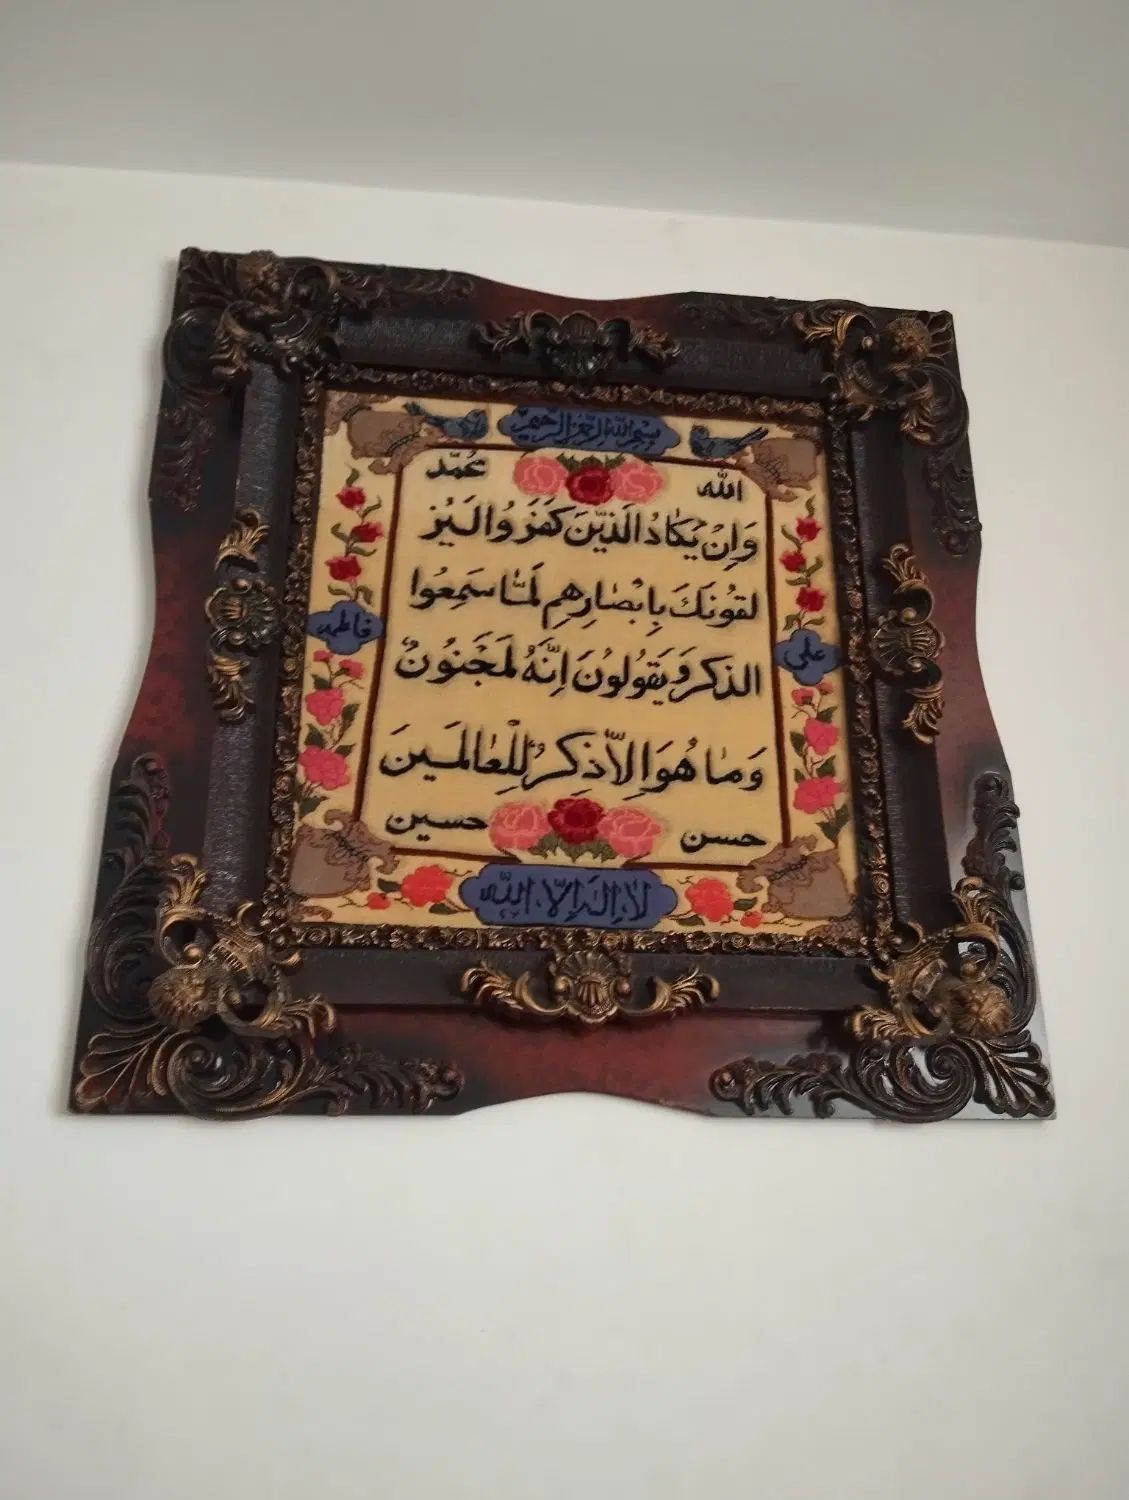 بسم الله الرحمن الرحیم
الله
محمد
وَاِنْ یَکٰادُ الَّذیّنَ کَفَرَوُا لَیُز
لقوُنَکَ بِابْصٰارِهِم لَمّٰا سَمِعُوا
الذکر وَ یَقوُلوُنَ اِنَّهُ لَمَجَنوُنٌ
وَمٰا هُوَ اِلّاٰ ذِکرٌ لِلْعٰالَمینَ
علی
فاطمه
حسن
حسین
لا اِلهَ اِلّا اللّه